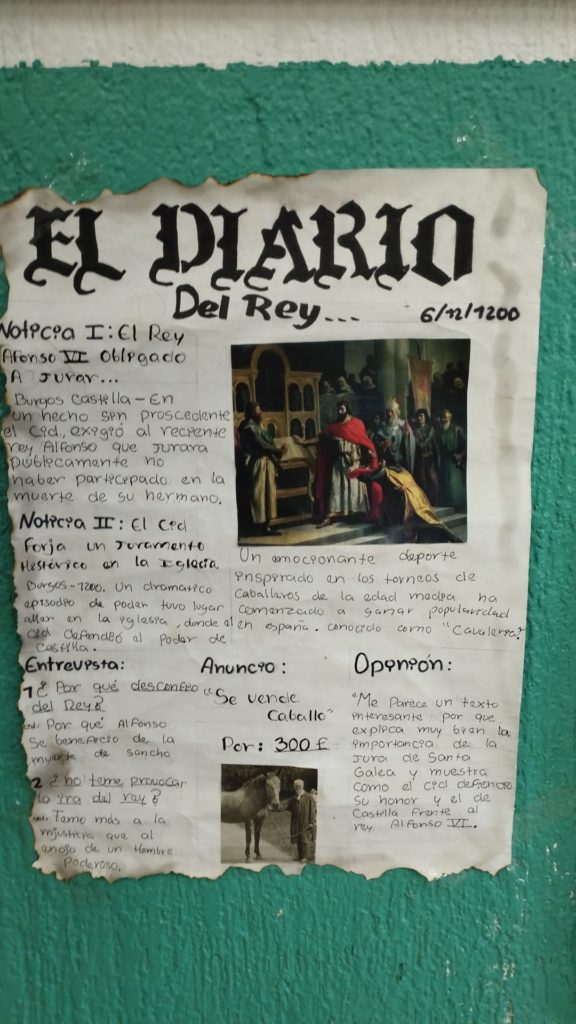 EL DIARIO
Del Rey...
6/12/1200
Noticia I: El Rey
Afonso VI Obligado
A Jurar...
Burgos Castilla - En
un hecho sen proscedente
el Cid, exigió al reciente
rey Alfonso que jurara
Publicamente no
haber participado en la
muerte de su hermano.
Noticia II: El Cid
Forja un Juramento
Hestórico en la Iglecia.
Burgos-1200. Un dramatico
episodio de poder tuvo lugar
aller en la iglesia, donde el
Cid defendió el poder de
Castilla.
Un emocionante deporte
inspirado en los torneos de
Caballeros de la edad media ha
comenzado a ganar popularidad
en españa. conocido como "Cavaleria"
Entrevista:
1 ¿Por qué desconfio
del Rey?
Cid: Por qué Alfonso
Se beneficio de la
muerte de sancho
2 ¿no teme provocar
la ira del rey?
Cid: Temo más a la
injusticia que al
enojo de un Hombre
Poderoso.
Anuncio:
"Se vende
Caballo"
Por: 300 £
Opinión:
"Me Parece un texto
interesante por que
explica muy bien la
importancia de la
Jura de Santa
Galea y muestra
como el cid defiende
su honor y el de
Castilla frente al
rey Alfonso VI.